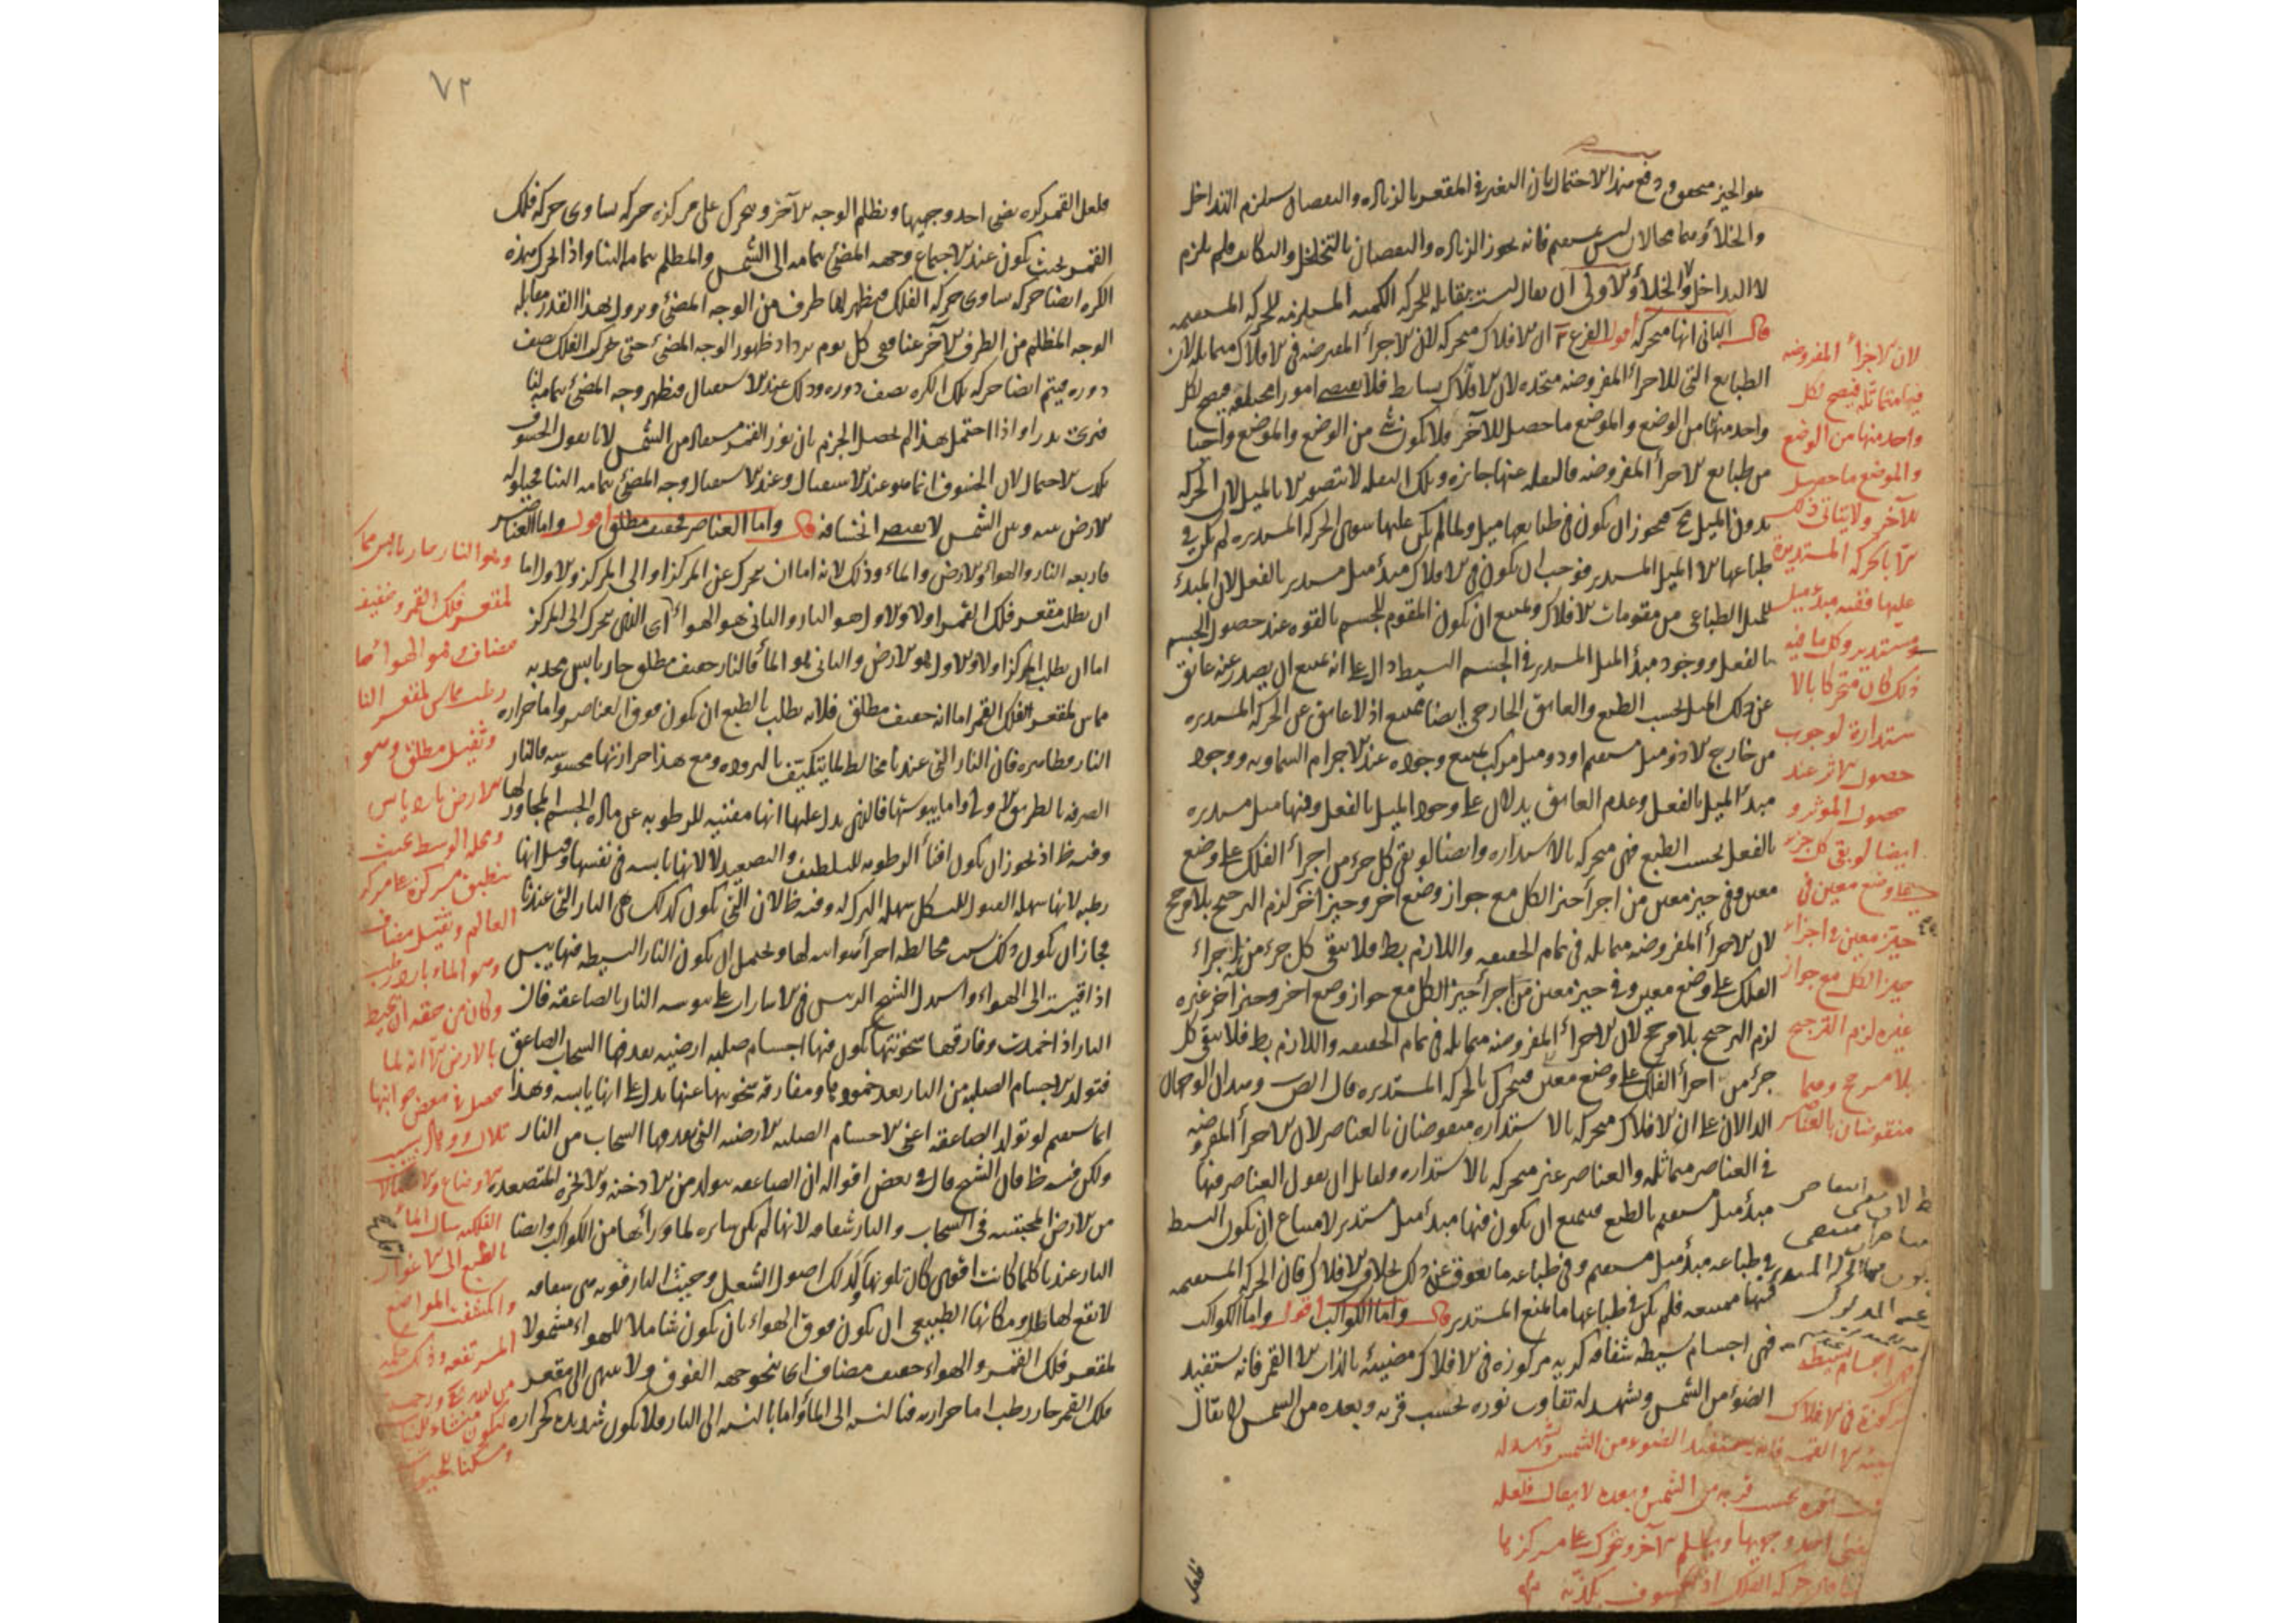 هو الحيز محقق ودفع هذا الاحتمال بان التغير في المقعر بالزياده والنقصان يستلزم التداخل
والخلاء وهما محالان ليس بمستقيم فانه يجوز الزياده والنقصان بالتخلخل والتكاثف فلم يلزم
لا التداخل ولا الخلاء والاولى ان يقال ليست بقابله للحركه الكميه المستلزمه للحركه المستقيمه
قال الثاني انها متحركه اقول الفرع ان الافلاك متحركه لان الاجزاء المفترضه في الافلاك متماثله لان
الطبايع التي للاجزاء المفروضه متحده لان الافلاك بسايط فلا تقتضي امورا مختلفه فيصح لكل
واحد منها من الوضع والموضع ما حصل للآخر ولا يكون شئ من الوضع والموضع واجبا
من طبايع الاجزاء المفروضه فالنقله عنها جايزه وتلك النقله لا تتصور الا بالميل لان الحركه
بدون الميل مح فيجوز ان يكون في طبايعها ميل ولما لم يكن عليها سوى الحركه المستديره لم يكن في
طباعها الا الميل المستدير فوجب ان يكون في الافلاك مبدأ ميل مستدير بالفعل لان المبدأ
للميل الطباعي من مقومات الافلاك ويمتنع ان يكون المقوم للجسم بالقوه عند حصول الجسم
بالفعل ووجود مبدأ الميل المستدير في الجسم البسيط دال على انه يمتنع ان يصدر عنه عايق
عن ذلك الميل بحسب الطبع والعايق الخارجي ايضا يمتنع اذ لا عايق عن الحركه المستديره
من خارج الا ذو ميل مستقيم او ذو ميل مركب يمتنع وجوده عند الاجرام السماويه ووجود
مبدأ الميل بالفعل وعدم العايق يدلان على وجود الميل بالفعل وفيها ميل مستديره
بالفعل بحسب الطبع فهي متحركه بالاستداره وايضا لو بقي كل جزء من اجزاء الفلك على وضع
معين وفي حيز معين من اجزاء حيز الكل مع جواز وضع آخر وحيز آخر لزم الترجيح بلا مرجح
لان الاجزاء المفروضه متماثله في تمام الحقيقه واللازم بط فلا يبقى كل جزء من اجزاء
الفلك على وضع معين وفي حيز معين من اجزاء حيز الكل مع جواز وضع آخر وحيز آخر غيره
لزم الترجيح بلا مرجح لان الاجزاء المفروضه متماثله في تمام الحقيقه واللازم بط فلا يبقى كل
جزء من اجزاء الفلك على وضع معين فيتحرك بالحركه المستديره قال المص وهذان الوجهان
الدالان على ان الافلاك متحركه بالاستداره منقوضان بالعناصر لان الاجزاء المفروضه
في العناصر متماثله والعناصر غير متحركه بالاستداره ولقايل ان يقول العناصر فيها
مبدأ ميل مستقيم بالطبع فيمتنع ان يكون فيها مبدأ ميل مستدير لامتناع ان يكون البسيط
في طباعه مبدأ ميل مستقيم وفي طباعه ما يعوق عن ذلك بخلاف الافلاك فان الحركه المستقيمه
فيها ممتنعه فلم يكن في طباعها ما يمنع المستدير قال واما الكواكب اقول واما الكواكب
فهي اجسام بسيطه شفافه كريه مركوزه في الافلاك مضيئه بالذات الا القمر فانه يستفيد
الضوء من الشمس ويشهد له تفاوت نوره بحسب قربه وبعده من الشمس لا يقال
فلعل
لان الاجزاء المفروضه
فيها متماثله فيصح لكل
واحد منها من الوضع
والموضع ما حصل
للآخر ولا يتاتى ذلك
الا بالحركه المستديرة
عليها ففيه مبدء ميل
مستدير وكل ما فيه
ذلك كان متحركا بالا
ستدارة لوجوب
حصول الاثر عند
حصول المؤثر و
ايضا لو بقى كل جزء
على وضع معين في
حيز معين من اجزاء
حيز الكل مع جواز
غيره لزم الترجيح
بلا مرجح وهما
منقوضان بالعناصر
اجسام بسيطه
مركوزة في الافلاك
الا القمر فانه يستفيد الضوء من الشمس ويشهد له
نوره بحسب قربه من الشمس وبعده لا يقال فلعله
يضئ احد وجهيها ويظلم الآخر وتتحرك على مركزها
حركه الفلك اذ الخسوف يكذبه
٧٣
فلعل القمر كره يضئ احد وجهيها ويظلم الوجه الآخر ويتحرك على مركزه حركه تساوي حركه فلك
القمر بحيث يكون عند الاجتماع وجهه المضئ بتمامه الى الشمس والمظلم بتمامه الينا واذا تحرك هذه
الكره ايضا حركه تساوي حركه الفلك فيظهر لها طرف من الوجه المضئ ويزول بهذا القدر مقابله
الوجه المظلم من الطرف الآخر عنا ففي كل يوم يزداد ظهور الوجه المضئ حتى يتحرك الفلك نصف
دوره فيتم ايضا حركه تلك الكره نصف دوره وذلك عند الاستقبال فيظهر وجه المضئ بتمامه لنا
فنرى بدرا واذا احتمل هذا لم يحصل الجزم بان نور القمر مستفاد من الشمس لانا نقول الخسوف
يكذب الاحتمال لان الخسوف انما هو عند الاستقبال وعند الاستقبال وجه المضئ بتمامه الينا فحيلوله
الارض بينه وبين الشمس لا يقتضي انخسافه قال واما العناصر فخفيف مطلق اقول واما العناصر
فاربعه النار والهواء والارض والماء وذلك لانه اما ان يتحرك عن المركز او الى المركز والاول اما
ان يطلب مقعر فلك القمر اولا والاول هو النار والثاني هو الهواء اي الذي يتحرك الى المركز
اما ان يطلب المركز اولا والاول هو الارض والثاني هو الماء فالنار خفيف مطلق حار يابس محدبه
مماس لمقعر فلك القمر اما انه خفيف مطلق فلانه يطلب بالطبع ان يكون فوق العناصر واما حراره
النار فظاهره فان النار التي عندنا مخالط لما يتكيف بالبروده ومع هذا حرارتها محسوسه فالنار
الصرفه بالطريق الاولى واما يبوستها فالذي يدل عليها انها مفنيه للرطوبه عن ماده الجسم المجاور لها
وفيه نظ اذ يجوز ان يكون افناء الرطوبه للتلطيف والتصعيد لا لانها يابسه في نفسها وقيل انها
رطبه لانها سهله القبول للتشكل سهله الترك له وفيه نظ لان التي تكون كذلك هي النار التي عندنا
فجاز ان يكون ذلك بسبب مخالطه اجزاء هوائيه لها ويحتمل ان يكون النار البسيطه فيها يبس
اذا قيست الى الهواء واستدل الشيخ الرئيس في الاشارات على يبوسه النار بالصاعقه فان
النار اذا خمدت وفارقتها سخونتها يكون فيها اجسام صلبه ارضيه يقذفها السحاب الصاعق
فتولد الاجسام الصلبه من النار بعد خمودها ومفارقه سخونتها عنها يدل على انها يابسه وهذا
انما يستقيم لو تولد الصاعقه اعني الاجسام الصلبه الارضيه التي يقذفها السحاب من النار
ولكن فيه نظ فان الشيخ قال في بعض اقواله ان الصاعقه تتولد من الادخنه والابخره المتصعده
من الارض المحتبسه في السحاب والنار شفافه لانها لم تكن ساتره لما ورائها من الكواكب وايضا
النار عندنا كلما كانت اقوى كان تلونها كذلك اصول الشعل وحيث النار قويه هي شفافه
لا تقع لها ظل ومكانها الطبيعي ان يكون فوق الهواء بان يكون شاملا للهواء مشمولا
لمقعر فلك القمر والهواء خفيف مضاف اي ينحو جهه الفوق ولا ينتهي الى مقعر
فلك القمر حار رطب اما حرارته فبالنسبه الى الماء واما بالنسبه الى النار فلا يكون شديده الحراره
وهو النار حار يابس مماس
لمقعر فلك القمر وخفيف
مضاف وهو الهواء حار
رطب مماس لمقعر النار
وثقيل مطلق وهو
الارض بارد يابس
ومحله الوسط بحيث
ينطبق مركزه على مركز
العالم وثقيل مضاف
وهو الماء بارد رطب
وكان من حقه ان يحيط
بالارض الا انه لما
حصل في بعض جوانبها
تلال ووهاد بسبب
الاوضاع والاتصالات
الفلكيه سال الماء
بالطبع الى الاغوار
وانكشفت المواضع
المرتفعه وذلك حكمه
من الله تعالى ورحمه
ليكون منشاء للنبات
ومسكنا للحيوانات